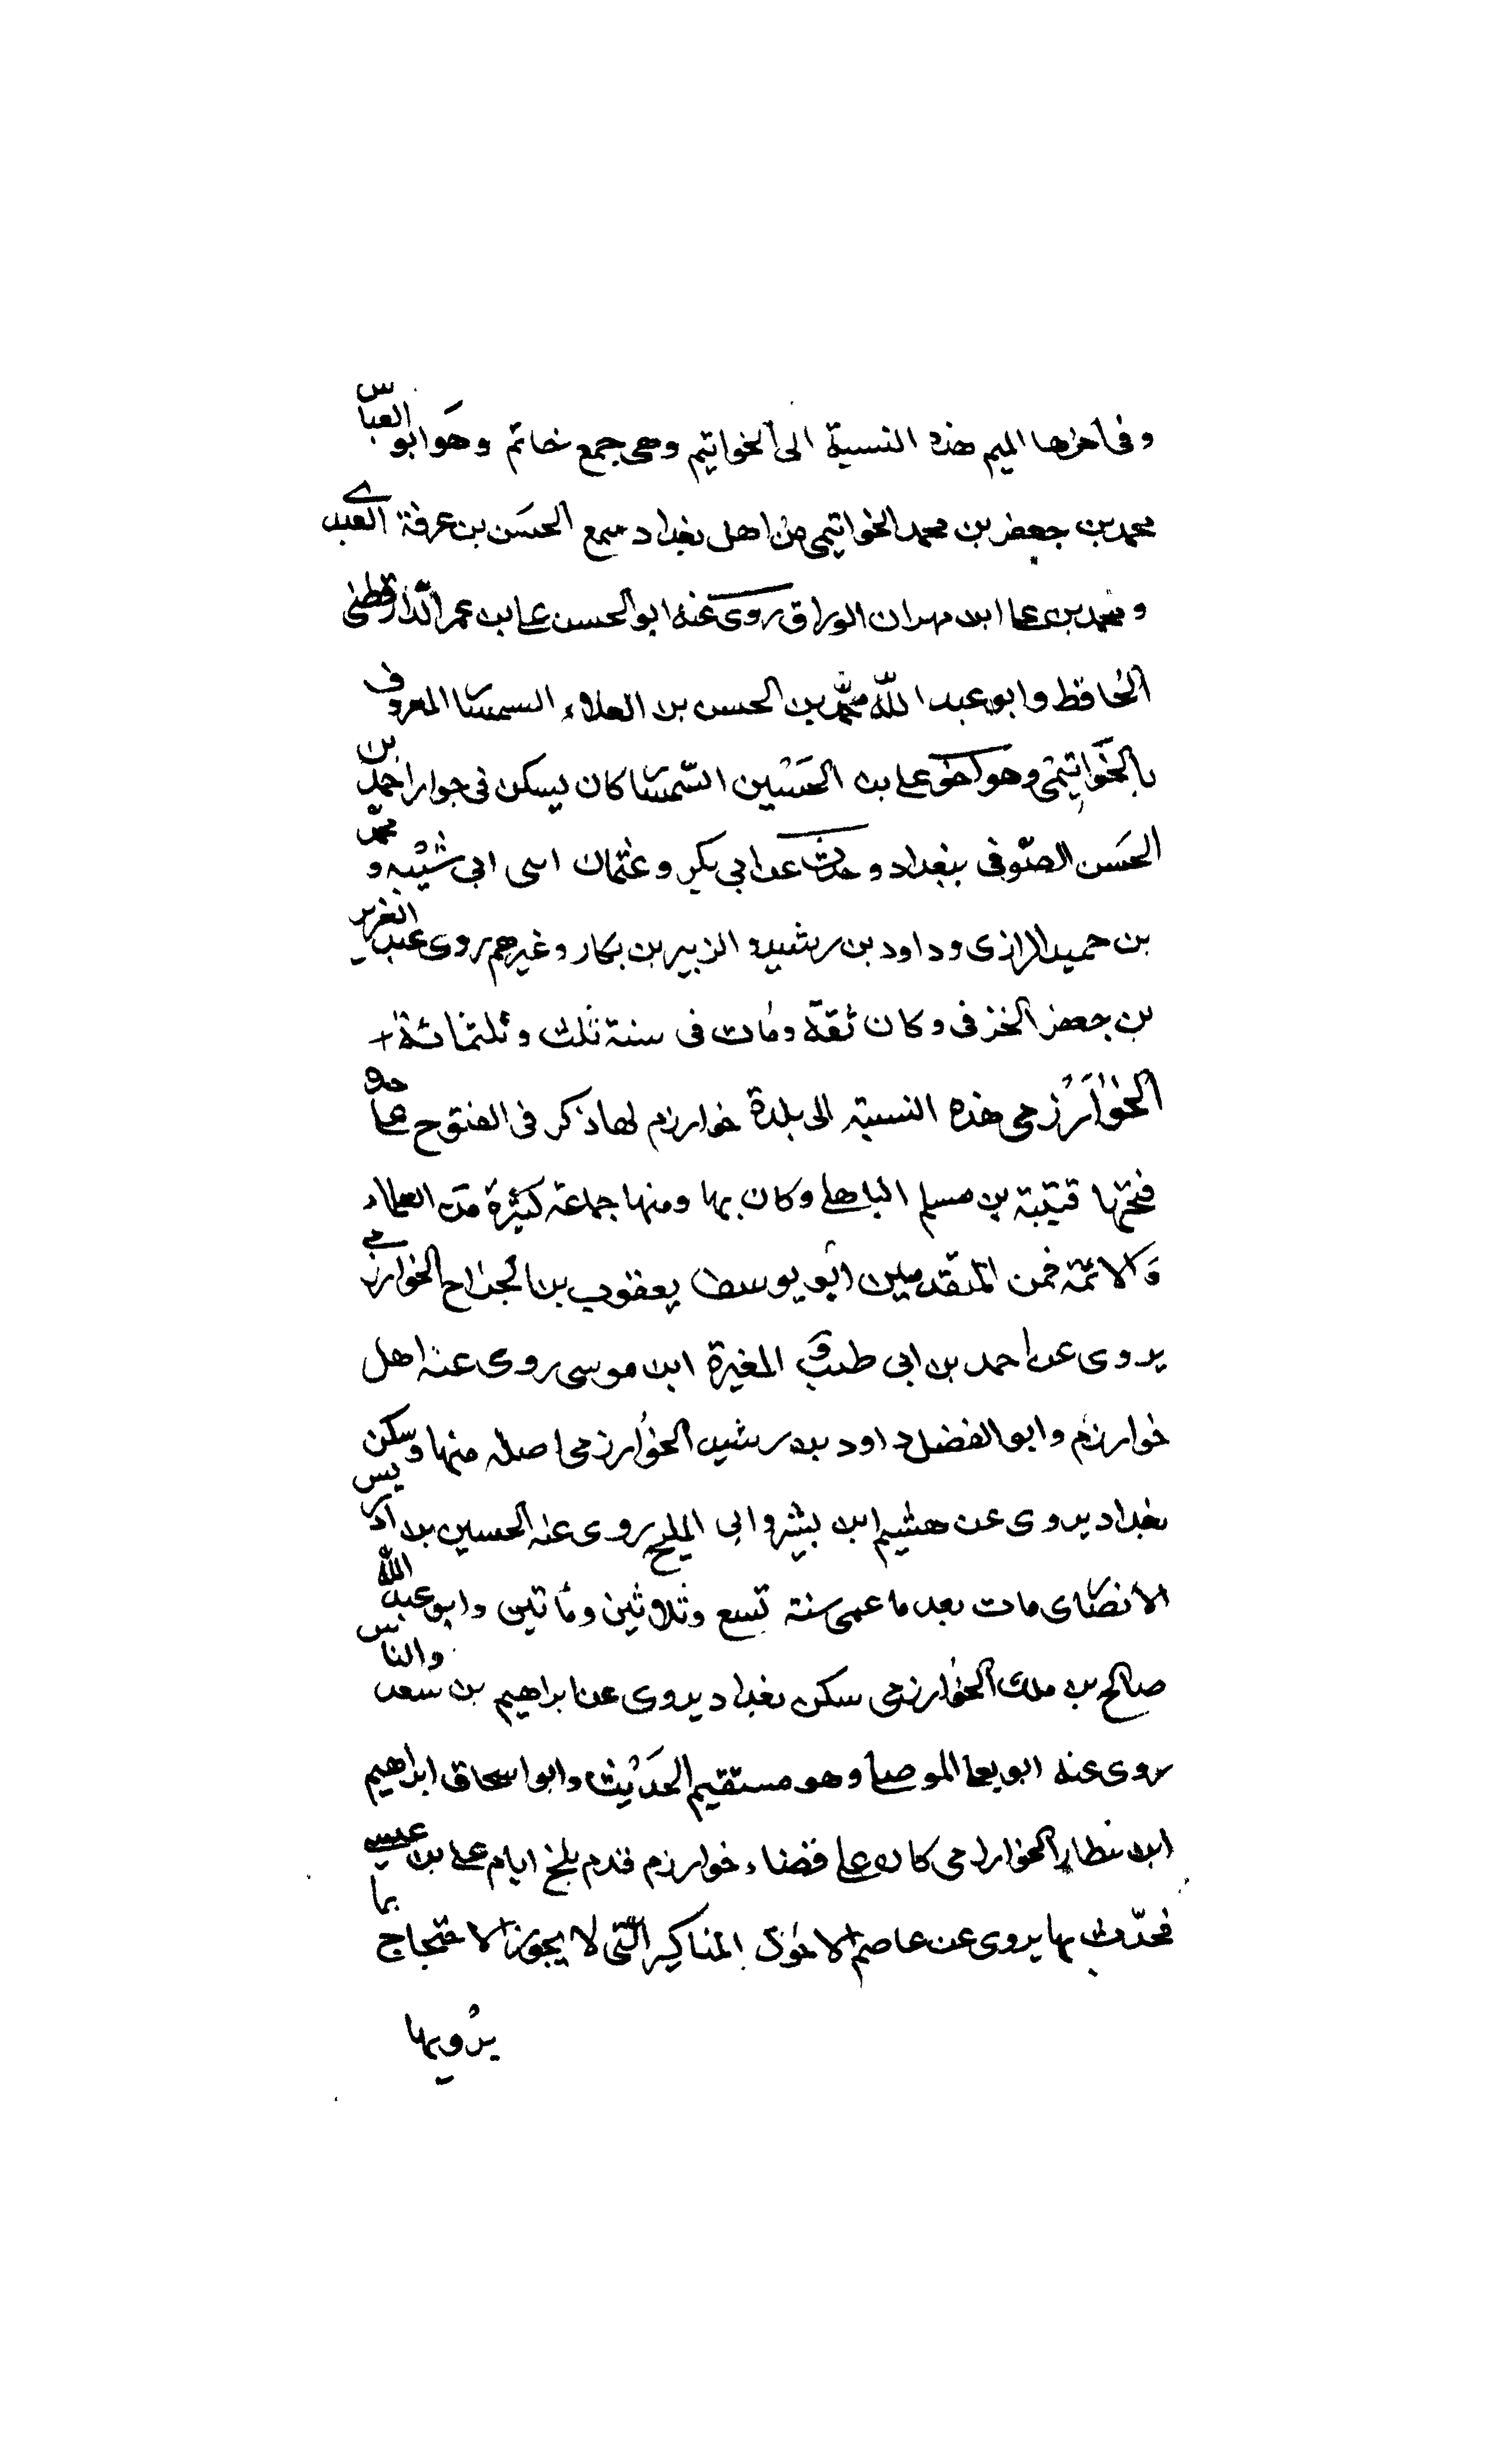 وفى اخرها الميم هذه النسبة الى الخواتيم وهى جمع خاتم وهو ابو العباس
محمد بن جعفر بن محمد الخواتيمى من اهل بغداد سمع الحسن بن عرفة العبدى
ومحمد بن على ابن مهران الوراق روى عنه ابو الحسن على بن عمر الدارقطنى
الحافظ وابو عبد الله محمد بن الحسن بن العلاء السمسار المعروف
بالخواتيمى وهو اخو على بن الحسين السمسار كان يسكن فى جوار احمد بن
الحسن الصوفى ببغداد وحدث عن ابى بكر وعثمان ابنى ابى شيبه ومحمد
بن حميد الرازى وداود بن رشيد والزبير بن بكار وغيرهم روى عبد العزيز
بن جعفر الخرفى وكان ثقة ومات فى سنة ثلث وثلثمائة
الخوارزمى هذه النسبة الى بلدة خوارزم لها ذكر فى الفتوح على حده
فتحها قتيبة بن مسلم الباهلى وكان بها ومنها جماعة كثيرة من العلماء
والائمة فمن المتقدمين ابو يوسف يعقوب بن الجراح الخوارزمى
يروى عن احمد بن ابى طيبة والمغيرة ابن موسى روى عنه اهل
خوارزم وابو الفضل داود بن رشيد الخوارزمى اصله منها وسكن
بغداد يروى عن هشيم ابن بشير وابى المليح روى عنه الحسين بن ادريس
الانصارى مات بعد ما عمى سنة تسع وثلاثين ومأتين وابو عبد الله
صالح بن ملك الخوارزمى سكن بغداد يروى عن ابراهيم بن سعد والناس
روى عنه ابو يعلى الموصلى وهو مستقيم الحديث وابو اسحاق ابراهيم
ابن الخوارزمى كان على قضاء خوارزم قدم بلخ ايام على بن عيسى
فحدث بها يروى عن عاصم الاحول المناكير التى لا يجوز الاحتجاج بما
يرويها